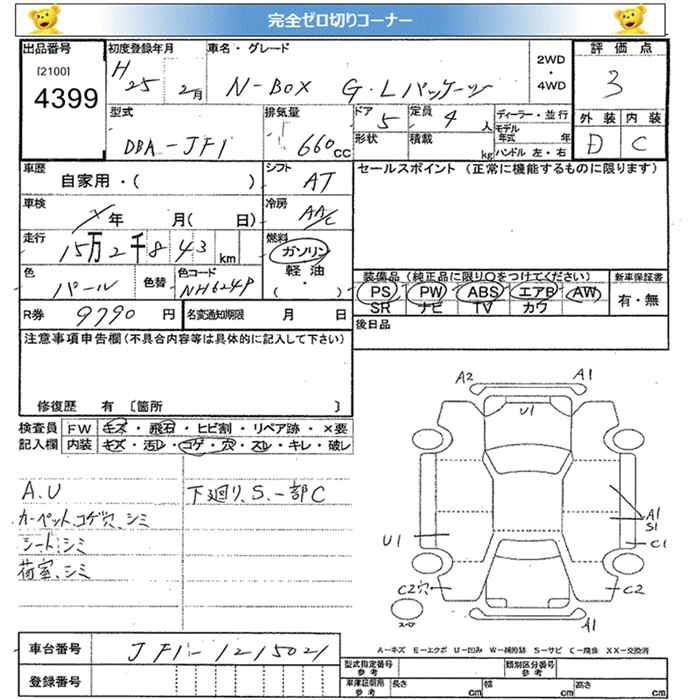 完全ゼロ切りコーナー
出品番号 初度登録年月 車名・グレード 2WD・4WD 評価点
[2100] 4399 H25 2月 N-BOX G・Lパッケージ 3
型式 排気量 ドア 定員 ディーラー・並行 外装 内装
DBA-JF1 660CC 5 4人 モデル年式 年 D C
形状 積載 kg ハンドル 左・右
車歴 シフト セールスポイント (正常に機能するものに限ります)
自家用・( ) AT
車検 冷房
年 月( 日) AAC
走行 燃料
15万2千843km ガソリン
軽油
色 色替 色コード ( ) 装備品 (純正品に限り○をつけてください) 新車保証書
パール NH624P PS PW ABS エアB AW 有・無
SR ナビ TV カワ
R券 9790円 名変通知期限 月 日 後日品
注意事項申告欄 (不具合内容等は具体的に記入して下さい)
修復歴 有 [箇所 ]
検査員 FW キズ・飛石・ヒビ割・リペア跡・×要
記入欄 内装 キズ・汚レ・コゲ・穴・スレ・キレ・破レ
A2 A1
U1
A.U 下廻り、S、一部C
カーペット、コゲ穴、シミ
シート、シミ
荷室、シミ
A1
S1
U1 C1
C2穴 C2
スペア A1
A-キズ E-エクボ U-凹み W-補修跡 S-サビ C-腐食 XX-交換済
車台番号 JF1-1215021
型式指定番号 参考 類別区分番号 参考
登録番号 車庫証明用 参考 長さ cm 幅 cm 高さ cm